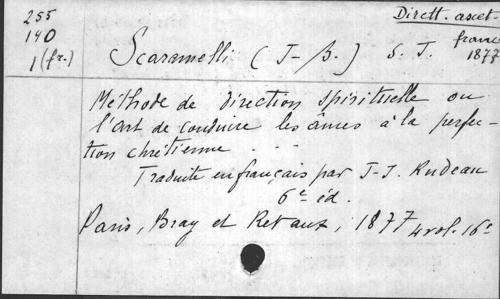 255 Dirett. ascet.
140 franc.
1 (fr.) Scaramelli (J-B.) S. J. 1877
Méthode de direction spirituelle ou
l'art de conduire les âmes à la perfec-
tion chrétienne . . .
Traduite en français par J-J. Rudeau
6e éd.
Paris, Bray et Retaux, 1877 4 vol. 16º